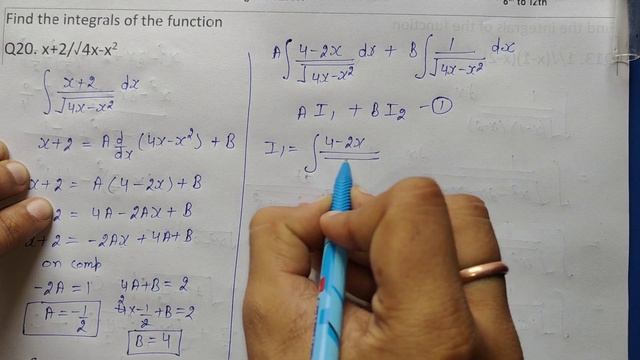 6th to 12th
Find the integrals of the function
Q20. x+2/√4x-x²
∫ x+2/√4x-x² dx
x+2 = A d/dx (4x-x²) + B
x+2 = A(4-2x)+B
2 = 4A-2Ax+B
x+2 = -2Ax+4A+B
on comp
-2A=1 4A+B=2
A=-1/2 4x-1/2+B=2
2
B=4
A∫ 4-2x/√4x-x² dx + B∫ 1/√4x-x² dx
A I₁ + B I₂ -①
I₁ = ∫ 4-2x